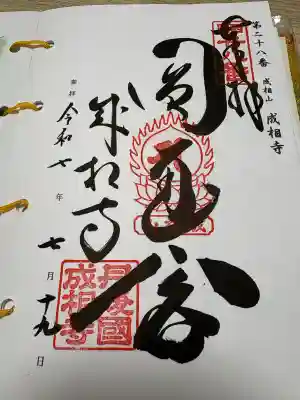 第二十八番 成相山 成相寺
奉拝
圓通閣
成相寺
奉拝
令和七年七月十九日
丹後國
成相寺